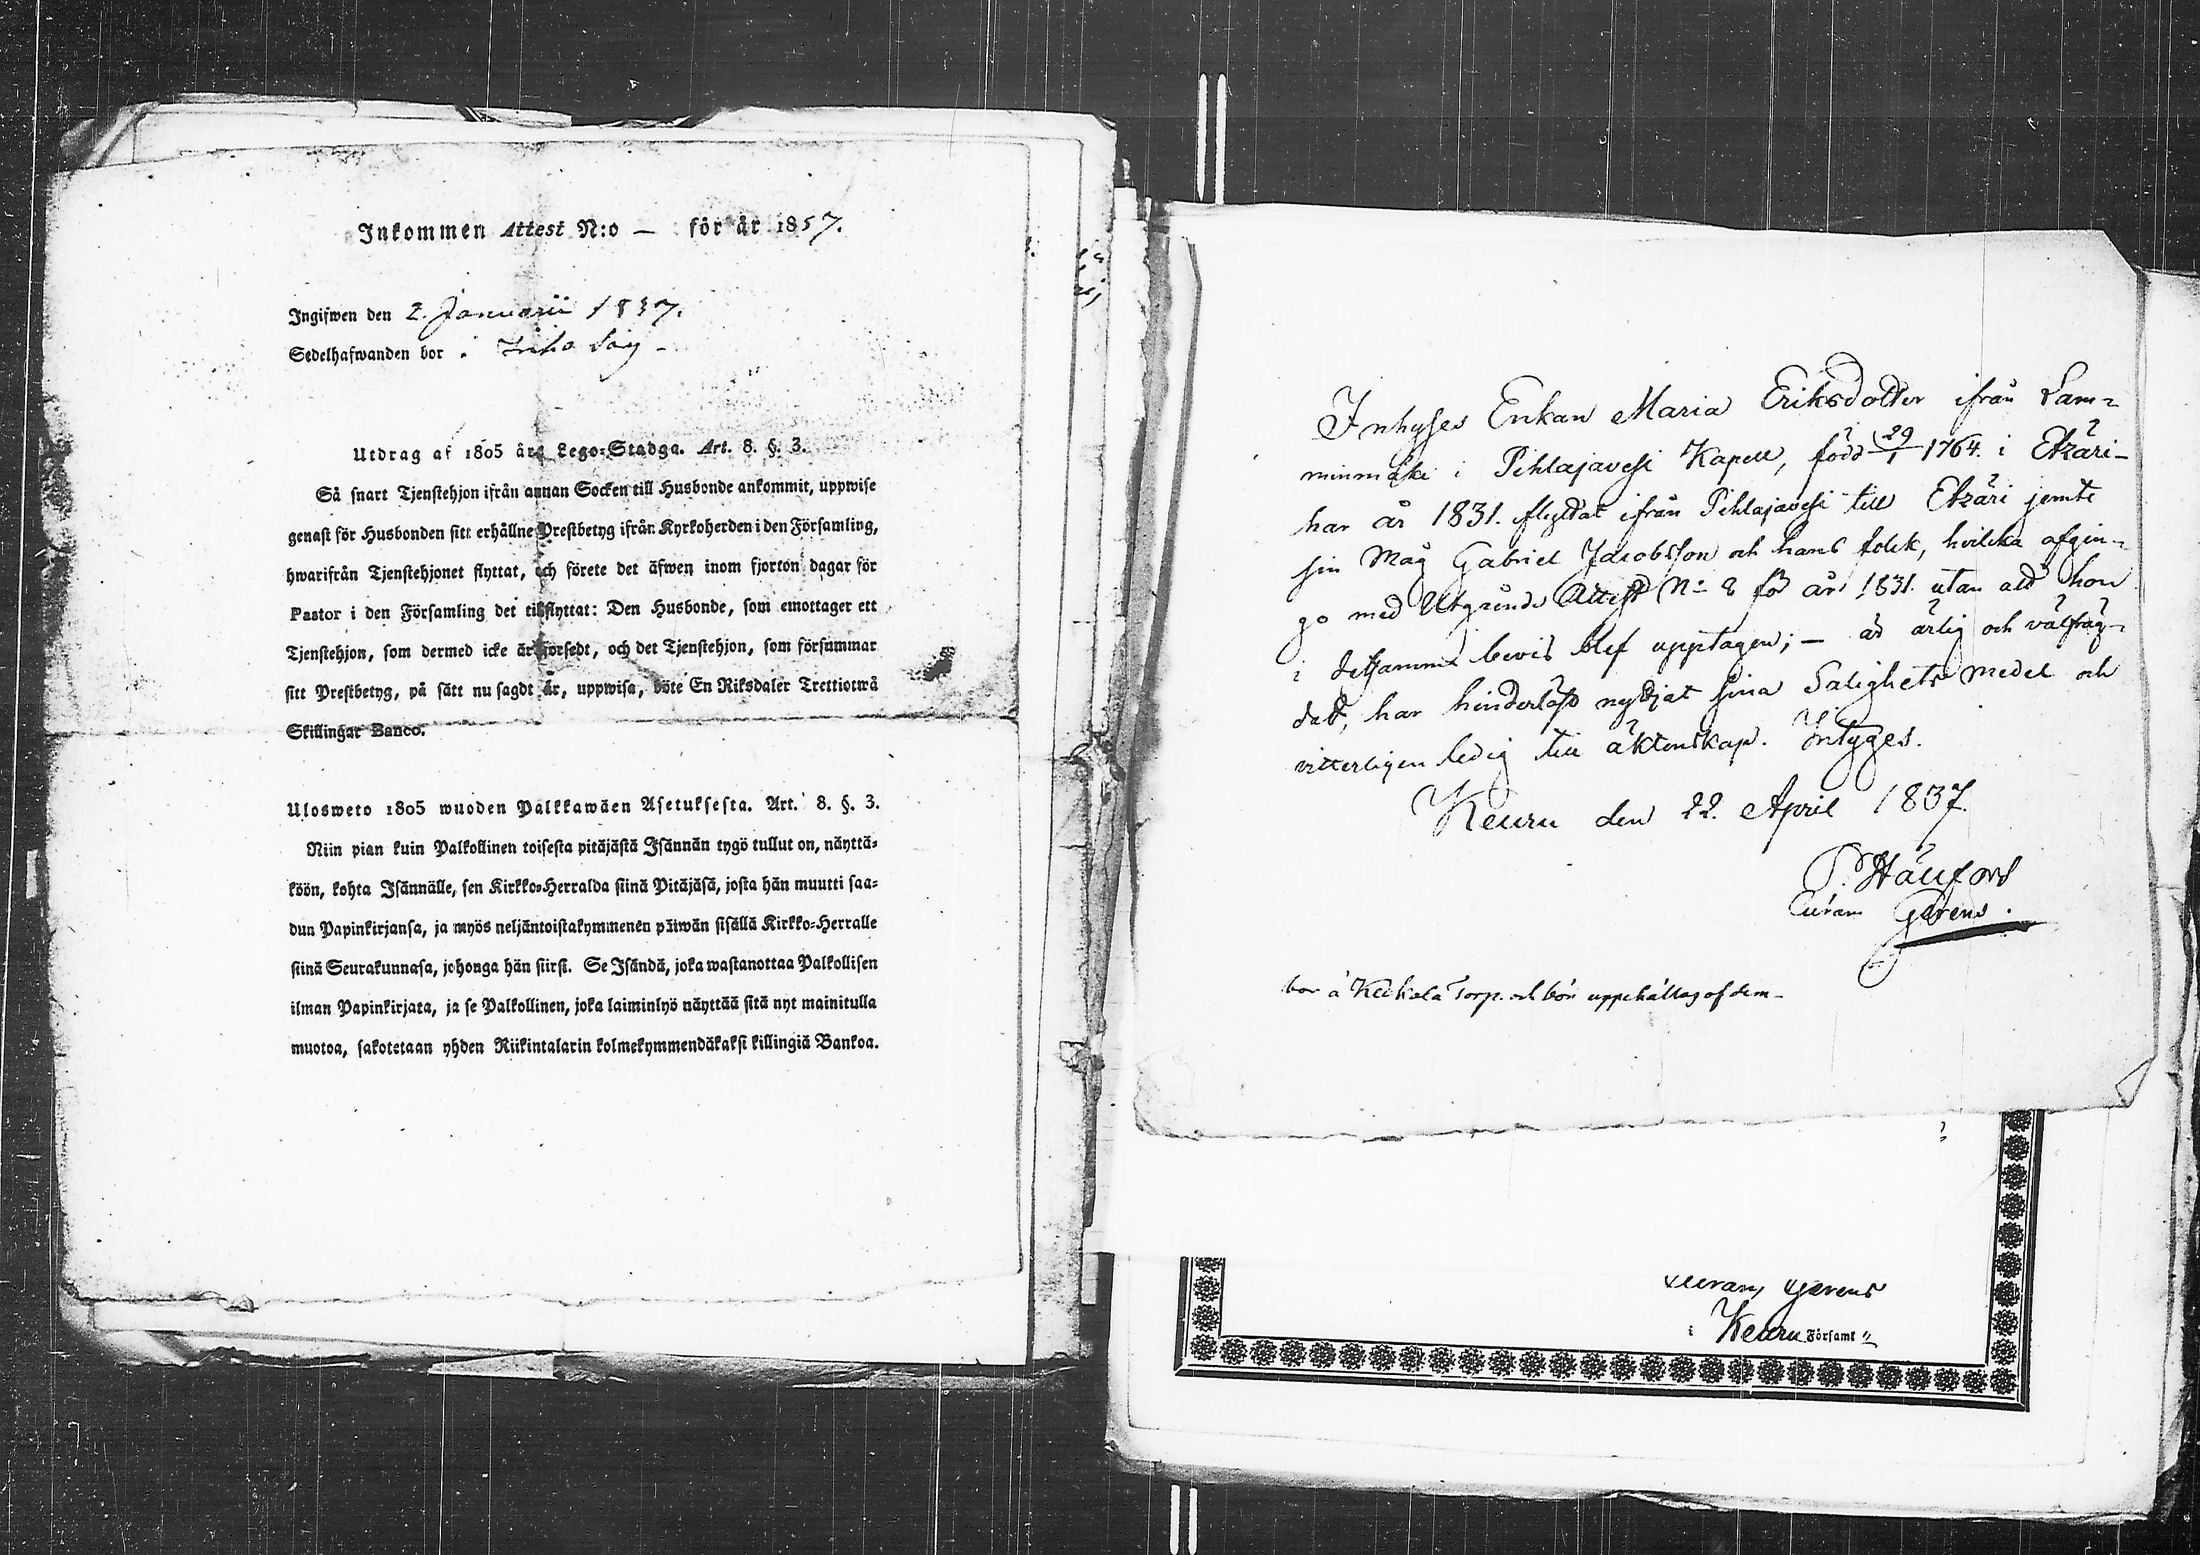 Inkommen Attest N:o — för år 1837.
Ingifwen den 2. Januarii 1837.
Sedelhafwanden bor
Utdrag af 1805 års Lego-Stadga. Art. 8. §. 3.
Så snart Tjenstehjon ifrån annan Socken till Husbonde ankommit, uppwise
genast för Husbonden sitt erhållne Prestbetyg ifrån Kyrkoherden i den Församling,
hwarifrån Tjenstehjonet flyttat, och förete det äfwen inom fjorton dagar för
Pastor i den Församling det tillflyttat: Den Husbonde, som emottager ett
Tjenstehjon, som dermed icke är försedt, och det Tjenstehjon, som försummar
sitt Prestbetyg, på sätt nu sagdt är, uppwisa, böte En Riksdaler Trettiotwå
Skillingar Banco.
Ulosweto 1805 wuoden Palkkawäen Asetuksesta. Art. 8. §. 3.
Niin pian kuin Palkollinen toisesta pitäjästä Isännän tygö tullut on, näyttä-
köön, kohta Isännälle, sen Kirkko-Herralda siinä Pitäjäsä, josta hän muutti saa-
dun Papinkirjansa, ja myös neljäntoistakymmenen päiwän sisällä Kirkko-Herralle
siinä Seurakunnasa, johonga hän siirsi. Se Isändä, joka wastanottaa Palkollisen
ilman Papinkirjata, ja se Palkollinen, joka laiminlyö näyttää sitä nyt mainitulla
muotoa, sakotetaan yhden Riikintalarin kolmekymmendäkaksi killingiä Bankoa.
Inhyses Enkan Maria Eriksdotter ifrån Lam-
minmäki i Pihlajavesi Kapell, född 29/1 1764 i Etzäri-
har år 1831. flyttat ifrån Pihlajavesi till Etzäri jemte
sin Måg Gabriel Jacobsson och hans folck, hvilcka afgin-
go med Utgående Attest N:o 8 för år 1831. utan att hon
i detsamma bevis blef upptagen; — är ärlig och välfräg-
dad, har hinderlöst nyttjat sina Salighets medel och
vitterligen ledig till äktenskap. Intyges.
Keuru den 22. April 1837.
P. Stålfors
Curam Gerens.
bor å Torp. och bör uppehållas af dem-
Curam Gerens
i Keuru Församl.